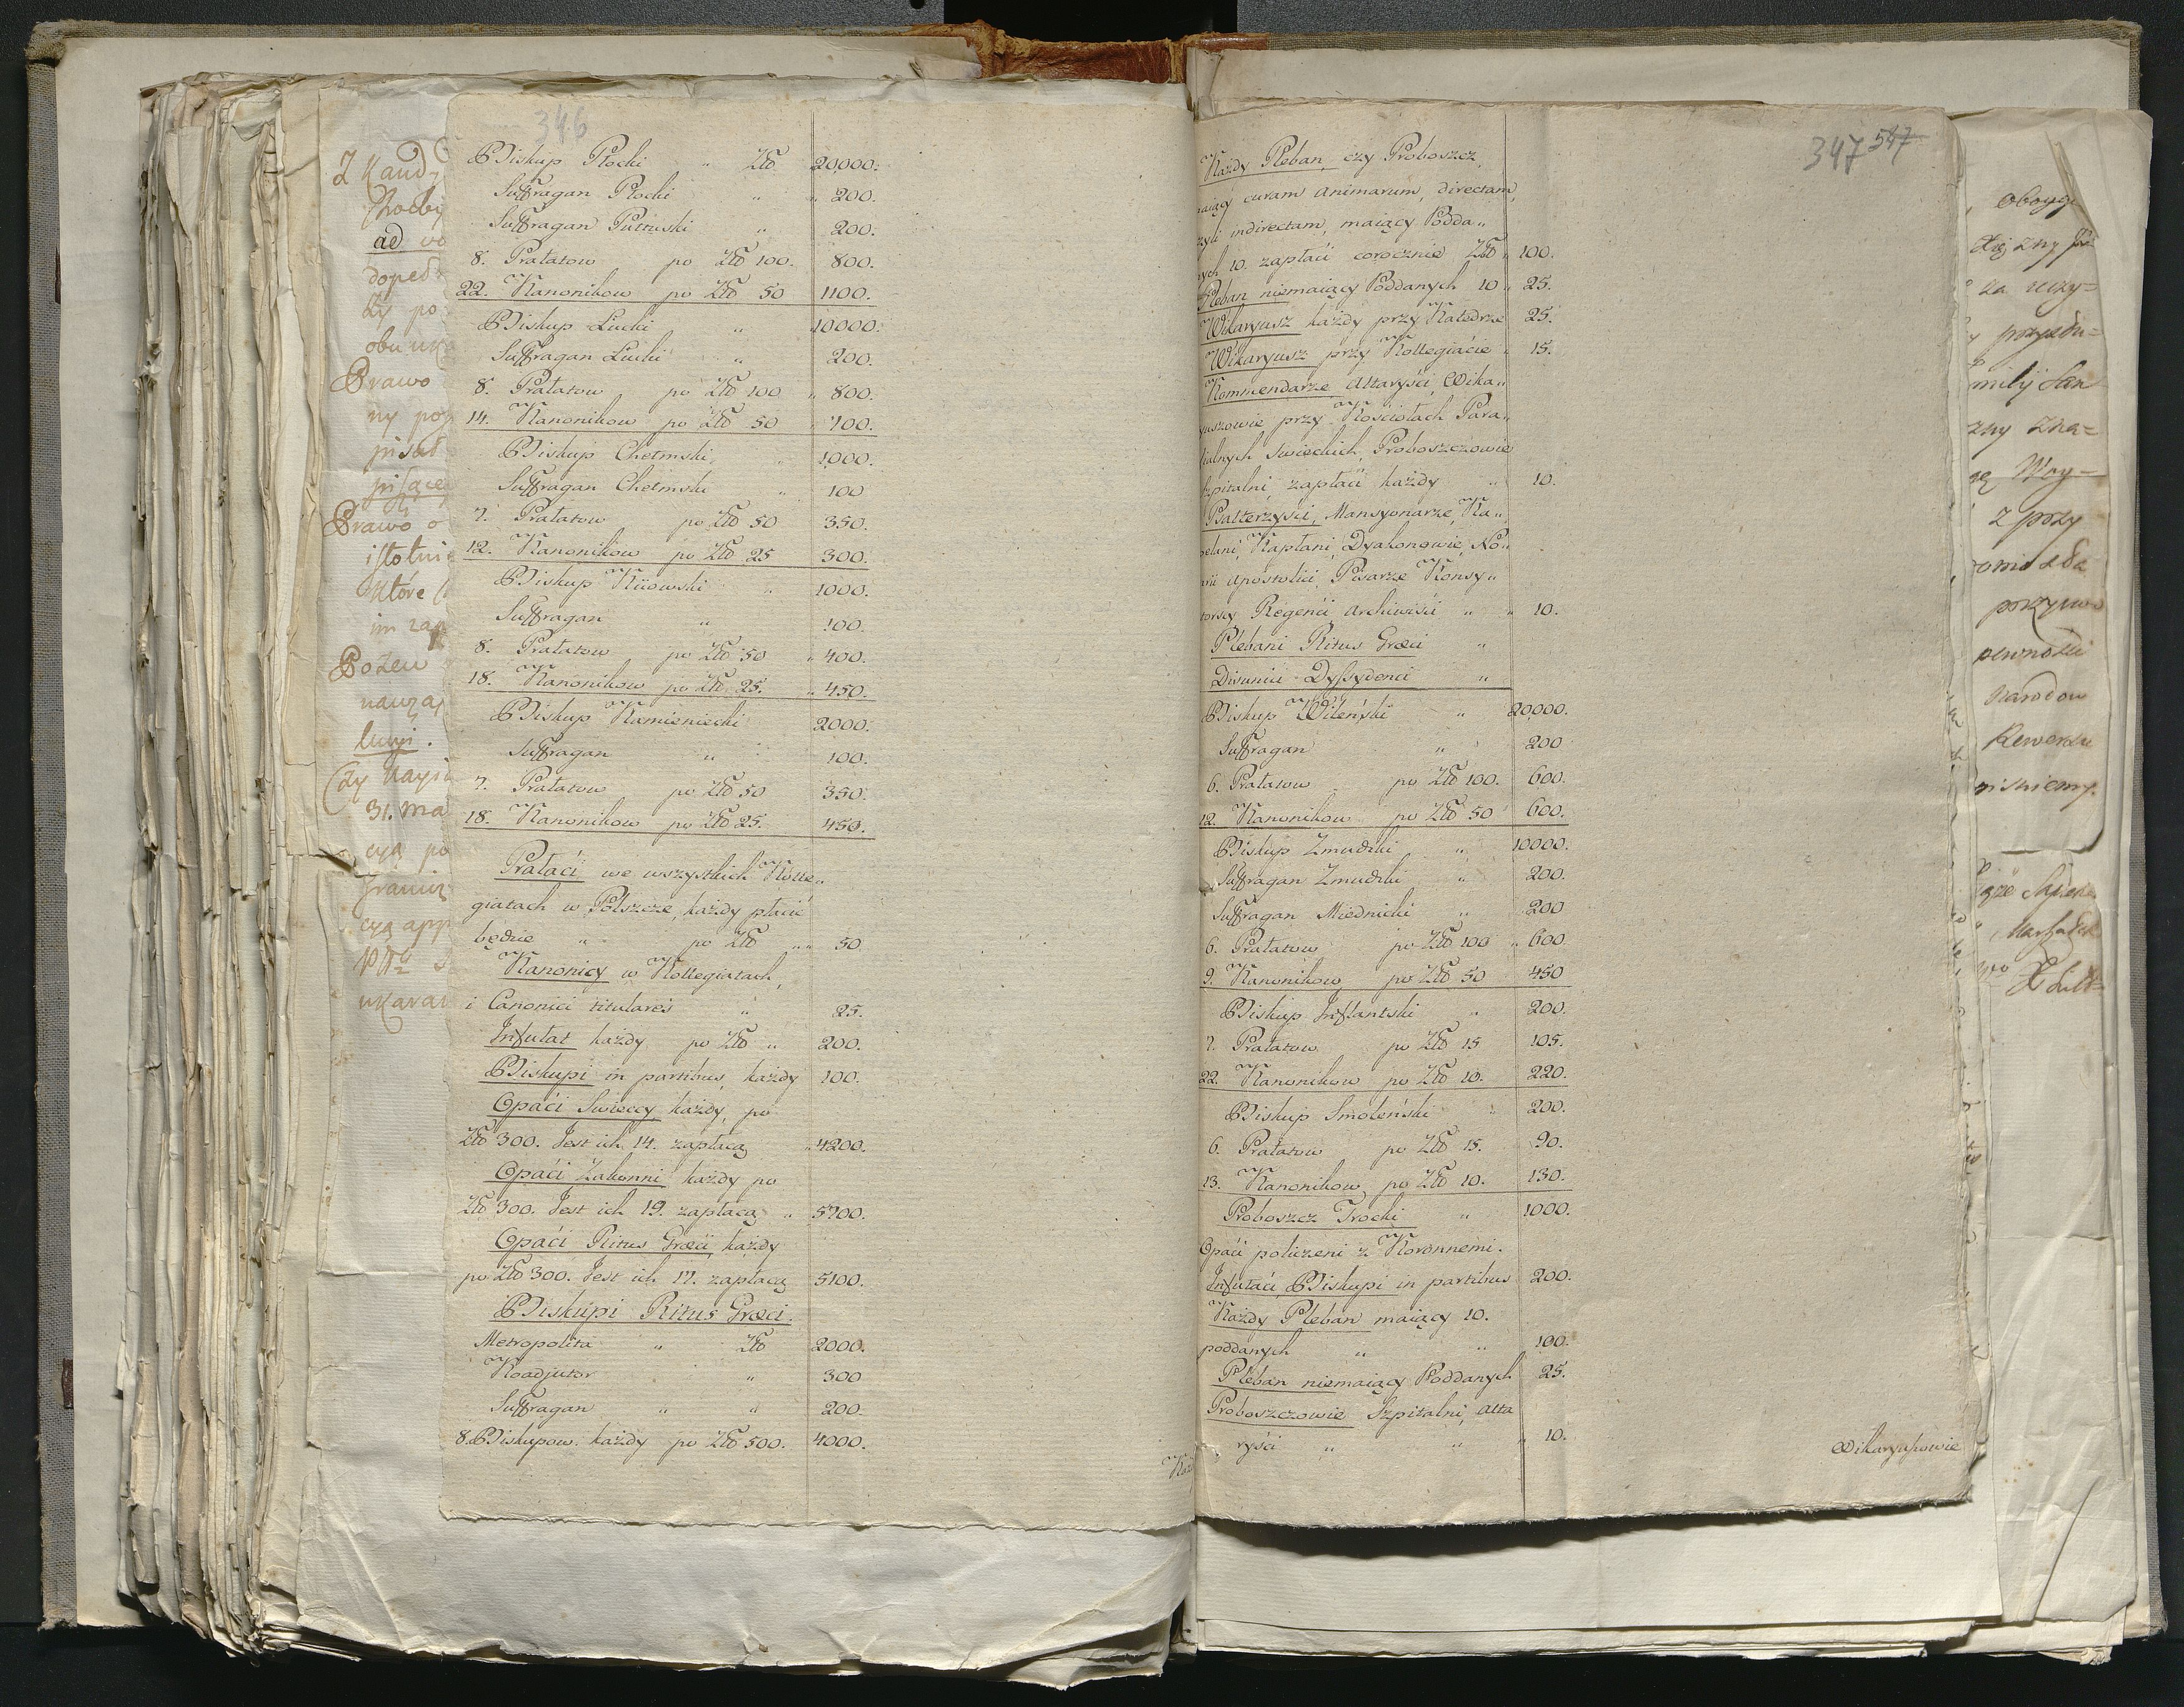 346
Biskup Płocki " Złł 20,000.
Suffragan Płocki " " 200.
Suffragan Pułtuski " 200.
8. Prałatow po Złł 100. 800.
22. Kanonikow po Złł 50 1100.
Biskup Łucki " 10000.
Suffragan Łucki " 200.
8. Prałatow po Złł 100 " 800.
14. Kanonikow po Złł 50 " 700.
Biskup Chełmski " 1000.
Suffragan Chełmski " 100
7. Prałatow po Złł 50 350.
12. Kanonikow po Złł 25 300.
Biskup Kiiowski " 1000.
Suffragan " 100.
8. Prałatow po Złł 50 " 400.
18. Kanonikow po Złł 25. " 450.
Biskup Kamieniecki 2000.
Suffragan " 100.
7. Prałatow po Złł 50 350.
18. Kanonikow po Złł 25. 450.
Prałaći we wszystkich Kolle"
giatach w Polszcze, każdy płacić
będzie " po Złł " 50
Kanonicy w Kollegiatach,
i Canonici titulares " 25.
Infułat każdy po Złł " 200.
Biskupi in partibus, każdy 100.
Opaći Swieccy, każdy, po
Złł 300. Jest ich 14. zapłacą " 4200.
Opaći Zakonni każdy po
Złł 300. Jest ich 19. zapłacą " 5700.
Opaći Ritus Græci, każdy
po Złł 300. Jest ich 17. zapłacą 5100.
Biskupi Ritus Græci.
Metropolita " Złł 2000.
Koadjutor " 300
Suffragan " " 200.
8. Biskupow każdy po Złł 500. 4000.
347 547
Każdy Pleban, czy Proboszcz,
maiący curam animarum, directam,
czyli indirectam, maiący Podda"
nych 10. zapłaći corocznie Złł " 100.
Pleban niemaiący Poddanych 10 " 25.
Wikaryusz każdy przy Katedrze 25.
Wikaryusz przy Kollegiacie " 15.
Kommendarze Altaryści, Wika"
ryuszowie przy Kościołach Para"
fialnych Swieckich, Proboszczowie
Szpitalni, zapłaći każdy " 10.
Psałterzyści, Mansyonarze, Ka"
pelani, Kapłani, Dyakonowie, No"
tarii Apostolici, Pisarze Konsy"
torscy Regenći Archiwiści " " 10.
Plebani Ritus Græci "
Disunici Dyssydenci "
Biskup Wileński " 20,000.
Suffragan " 200
6. Prałatow po Złł 100. 600.
12. Kanonikow po Złł 50 600.
Biskup Zmudzki " 10000.
Suffragan Zmudzki " 200.
Suffragan Miednicki " 200
6. Prałatow po Złł 100 " 600.
9. Kanonikow po Złł 50 450
Biskup Inflantski " 200.
7. Prałatow po Złł 15 105.
22. Kanonikow po Złł 10. 220.
Biskup Smoleński " 200.
6. Prałatow po Złł 15. 90.
13. Kanonikow po Złł 10. 130.
Proboszcz Trocki " 1000.
Opaći policzeni z Koronnemi.
Infułaći, Biskupi in partibus 200.
Każdy Pleban maiący 10.
poddanych " " 100.
Pleban niemaiący Poddanych 25.
Proboszczowie Szpitalni, Alta
ryści " " " 10.
Wikaryuszowie